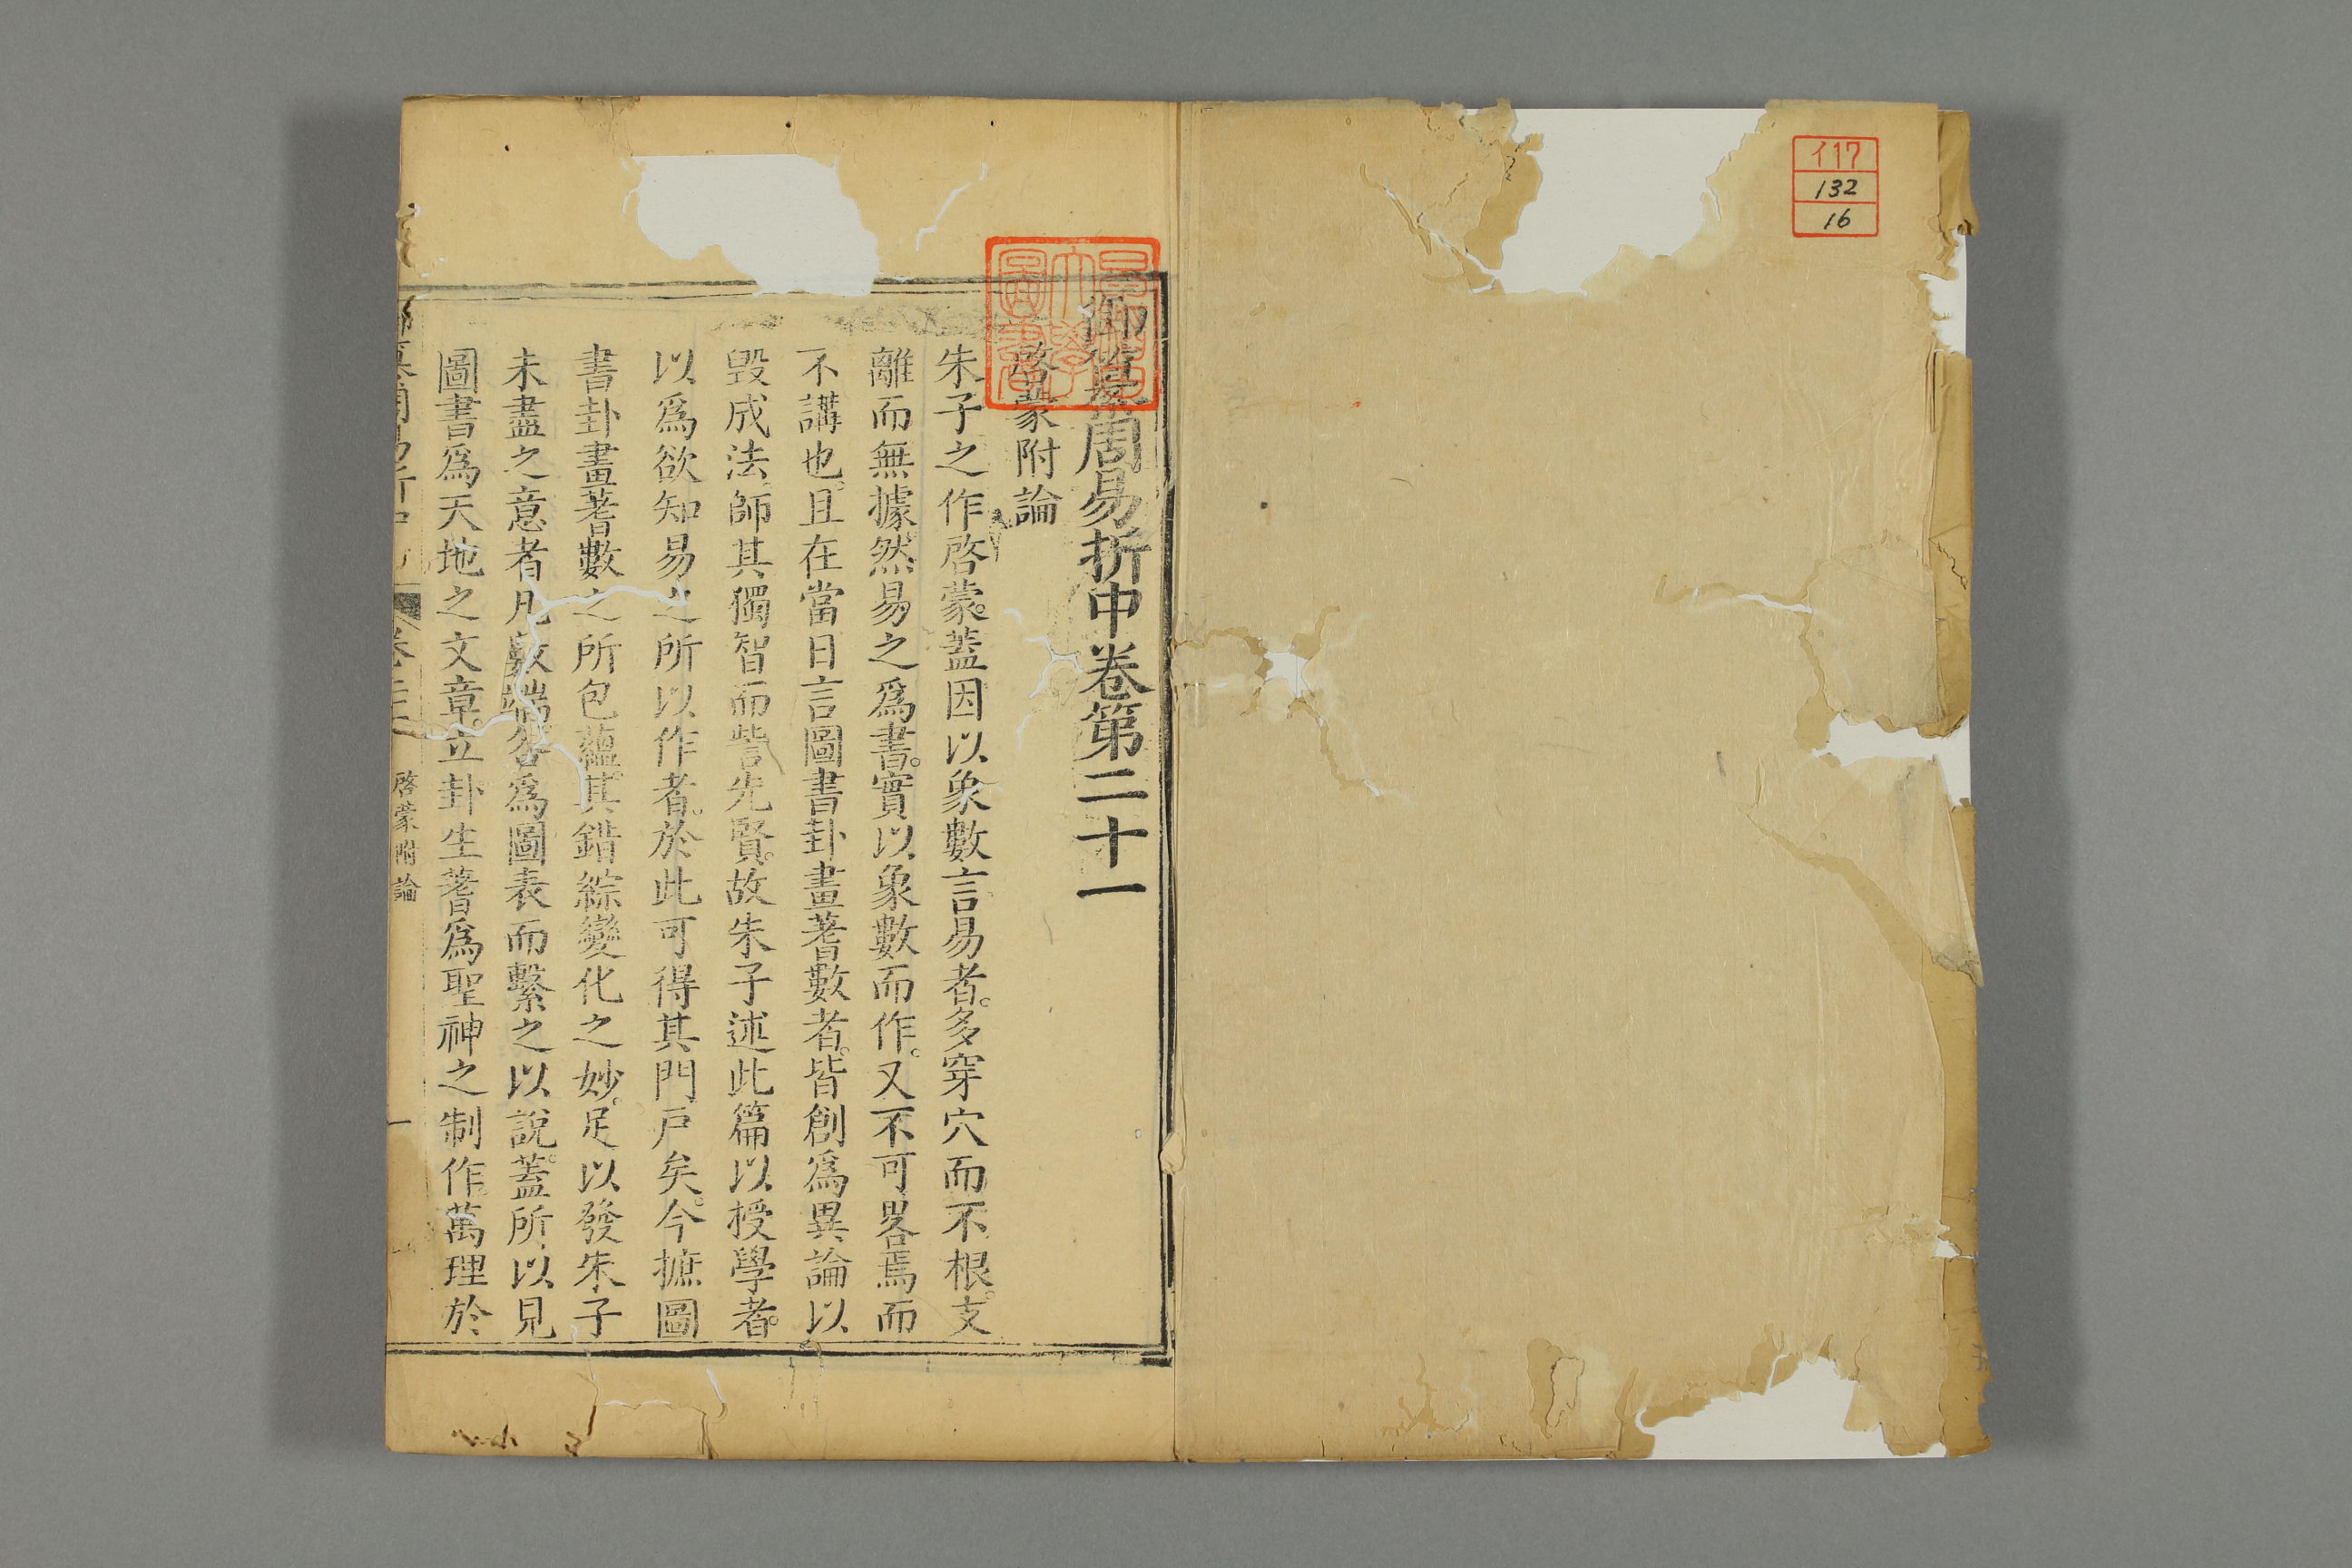 イ17
132
16
御纂周易折中卷第二十一
啓蒙附論
朱子之作啓蒙。蓋因以象數言易者。多穿穴而不根。支
離而無據。然易之爲書。實以象數而作。又不可畧焉而
不講也。且在當日言圖書卦畫蓍數者。皆創爲異論以
毀成法。師其獨智而訾先賢。故朱子述此篇以授學者。
以爲欲知易之所以作者。於此可得其門戸矣。今摭圖
書卦畫蓍數之所包蘊。其錯綜變化之妙。足以發朱子
未盡之意者凡數端。各爲圖表而繫之以說。蓋所以見
圖書爲天地之文章。立卦生蓍爲聖神之制作。萬理於
卷二十一 啓蒙附論 一